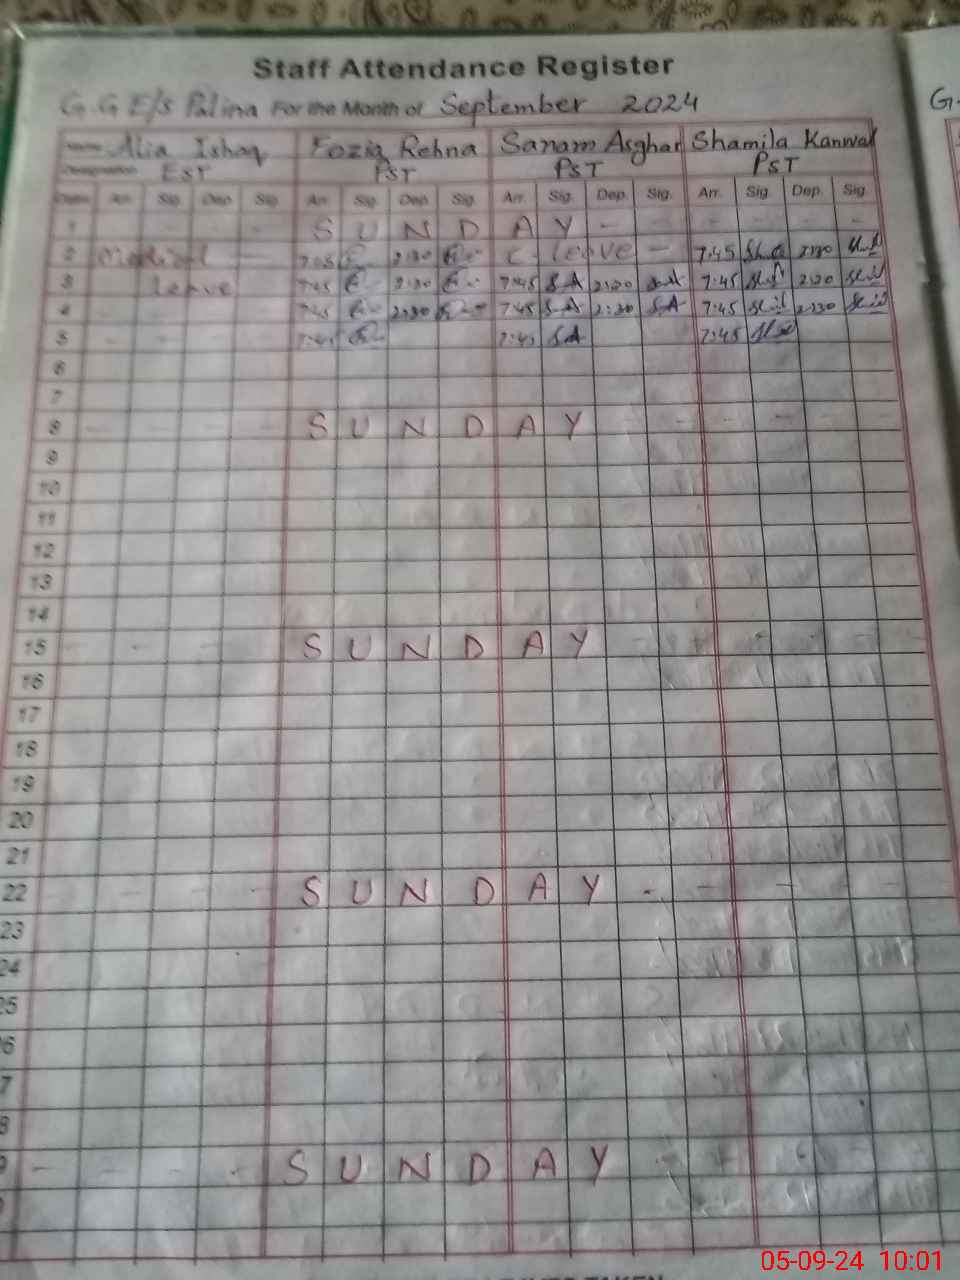 Staff Attendance Register
G.G E/s Palina For the Month of September 2024
G.
Name Alia Ishaq Fozia Rehna Sanam Asghar Shamila Kanwal
Designation EST PST PST PST
Dates Arr. Sig. Dep. Sig. Arr. Sig. Dep. Sig. Arr. Sig. Dep. Sig. Arr. Sig. Dep. Sig.
1 - - - - S U N D A Y - - - - - -
2 Medical — 2:30 C. leave — 7:45 2:30
3 leave 7:45 2:30 7:45 S.A 2:30 S.A 7:45 2:30
4 7:45 2:30 7:45 S.A 2:30 S.A 7:45 2:30
5 7:45 7:45 S.A 7:45
6
7
8 - - - - S U N D A Y - - - - - -
9
10
11
12
13
14
15 - - - - S U N D A Y - - - - - -
16
17
18
19
20
21
22 - - - - S U N D A Y - - - - - -
23
24
25
6
7
8
9 - - - - S U N D A Y - - - -
05-09-24 10:01